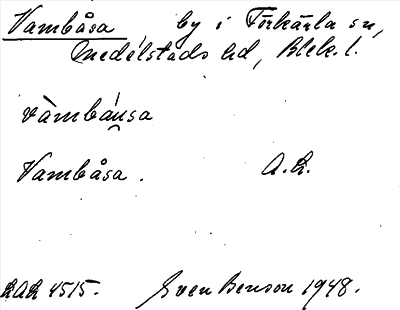 Vambåsa by i Förkärla sn,
Medelstads hd, Blek. l.
vàmbáusa
Vambåsa. A.L.
LAL 4515. Sven Benson 1948.